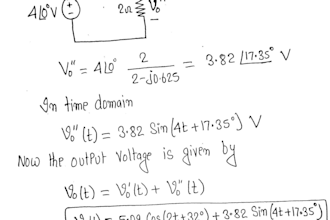 4∠0° V + - 2Ω V₀''
V₀'' = 4∠0° 2 / (2-j0.625) = 3.82 ∠17.35° V
In time domain
V₀''(t) = 3.82 Sin(4t+17.35°) V
Now the output voltage is given by
V₀(t) = V₀'(t) + V₀''(t)
5.09 Cos(2t+32°) + 3.82 Sin(4t+17.35°)